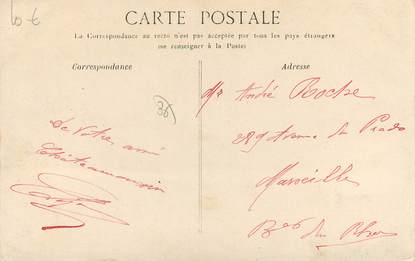 10 €
CARTE POSTALE
La Correspondance au recto n'est pas acceptée par tous les pays étrangers
(se renseigner à la Poste)
Correspondance
Adresse
38
Mr André Roche
289 Avenue du Prado
Marseille
Bes du Rhône
De votre ami